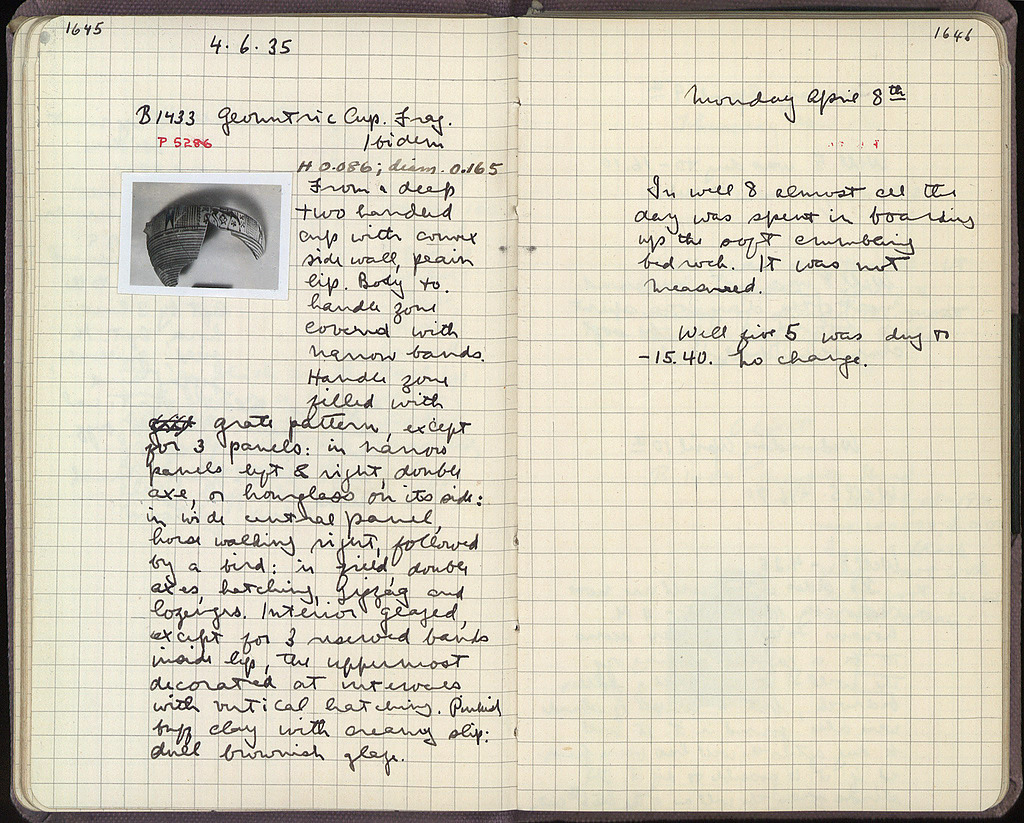 1645
4.6.35
B1433 Geometric Cup. Frag.
P 5286
Ibidem
H 0.086; diam. 0.165
From a deep
two handled
cup with convex
side wall, plain
lip. Body to
handle zone
covered with
narrow bands.
Handle zone
filled with
grate pattern, except
for 3 panels: in narrow
panels left & right, double
axe, or hourglass on its side:
in wide central panel,
horse walking right, followed
by a bird: in field double
axes, hatching, zigzag and
lozenges. Interior glazed,
except for 3 reserved bands
inside lip, the uppermost
decorated at intervals
with vertical hatching. Pinkish
buff clay with creamy slip:
dull brownish glaze.
1646
Monday April 8th
In well 8 almost all the
day was spent in boarding
up the soft crumbling
bedrock. It was not
measured.
Well five 5 was dug to
-15.40. No change.